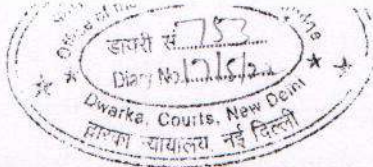 Office of the
डायरी सं. 753
Diary No. 17/5/2
Dwarka, Courts, New Delhi
द्वारका न्यायालय, नई दिल्ली